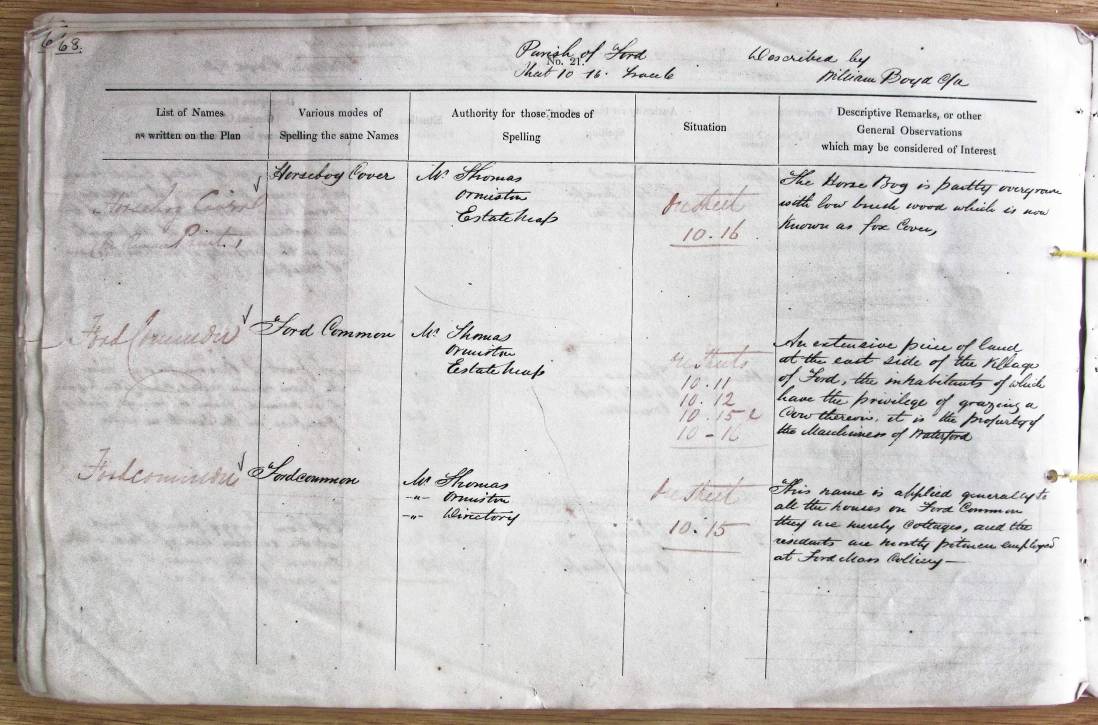 68.
Parish of Ford
No. 21.
Sheet 10 16. Trace 6
Described by
William Boyd C/a
List of Names
as written on the Plan
Various modes of
Spelling the same Names
Authority for those modes of
Spelling
Situation
Descriptive Remarks, or other
General Observations
which may be considered of Interest
Horsebog Cover
Horsebog Cover
Mr. Thomas
Ormiston
Estate Map
On Sheet
10.16
The Horse Bog is partly overgrown
with low brush wood which is now
Known as fox Cover,
Ford Common
Ford Common
Mr. Thomas
Ormiston
Estate Map
On Sheets
10.11
10.12
10.15 &
10-16
An extensive piece of land
at the east side of the Village
of Ford, the inhabitants of which
have the privilege of grazing a
Cow thereon, it is the property of
the Marchioness of Waterford
Fordcommon
Fordcommon
Mr. Thomas
-"- Ormiston
-"- Directory
On Sheet
10.15
This name is applied generally to
all the houses on Ford Common
they are merely Cottages, and the
residents are mostly pitmen employed
at Ford Moss Colliery—